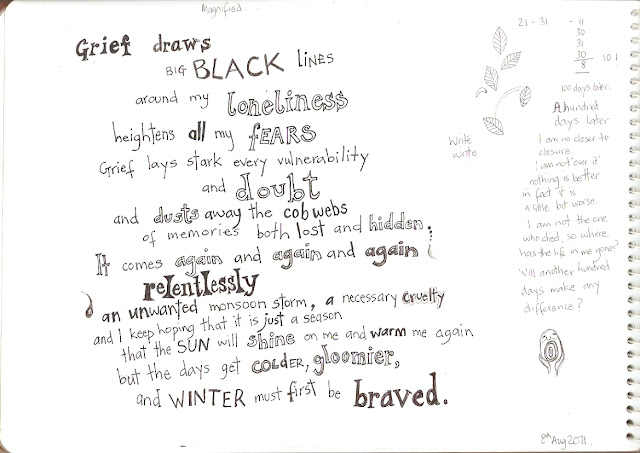 Magnified
Grief draws
BIG BLACK LINES
around my loneliness
heightens all my FEARS
Grief lays stark every vulnerability
and doubt
and dusts away the cobwebs
of memories both lost and hidden.
It comes again and again and again
relentlessly
an unwanted monsoon storm, a necessary cruelty
and I keep hoping that it is just a season
that the SUN will shine on me and warm me again
but the days get COLDER, gloomier,
and WINTER must first be braved.
21 - 31 - 11
30
31
30
8
101
100 days later.
A hundred
days later
Write
write
I am no closer to
closure.
I am not 'over it'
nothing is better
in fact it is
a little bit worse.
I am not the one
who died, so where
has the life in me gone?
Will another hundred
days make any
difference?
8th Aug 2011.